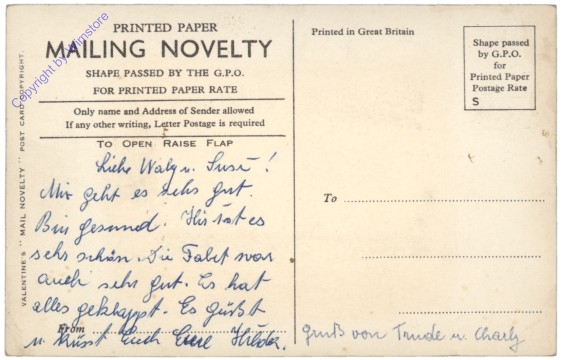 PRINTED PAPER
MAILING NOVELTY
SHAPE PASSED BY THE G.P.O.
FOR PRINTED PAPER RATE
Only name and Address of Sender allowed
If any other writing, Letter Postage is required
TO OPEN RAISE FLAP
Liebe Waly u. Susi!
Mir geht es sehr gut.
Bin gesund. Hier ist es
sehr schön. Die Fahrt war
auch sehr gut. Es hat
alles geklappt. Es grüßt
From
u. küsst Euch Eure Hilde.
VALENTINE'S "MAIL NOVELTY" POST CARD COPYRIGHT.
Copyright by Wimstore
Printed in Great Britain
Shape passed
by G.P.O.
for
Printed Paper
Postage Rate
S
To
Gruß von Trude u. Charly